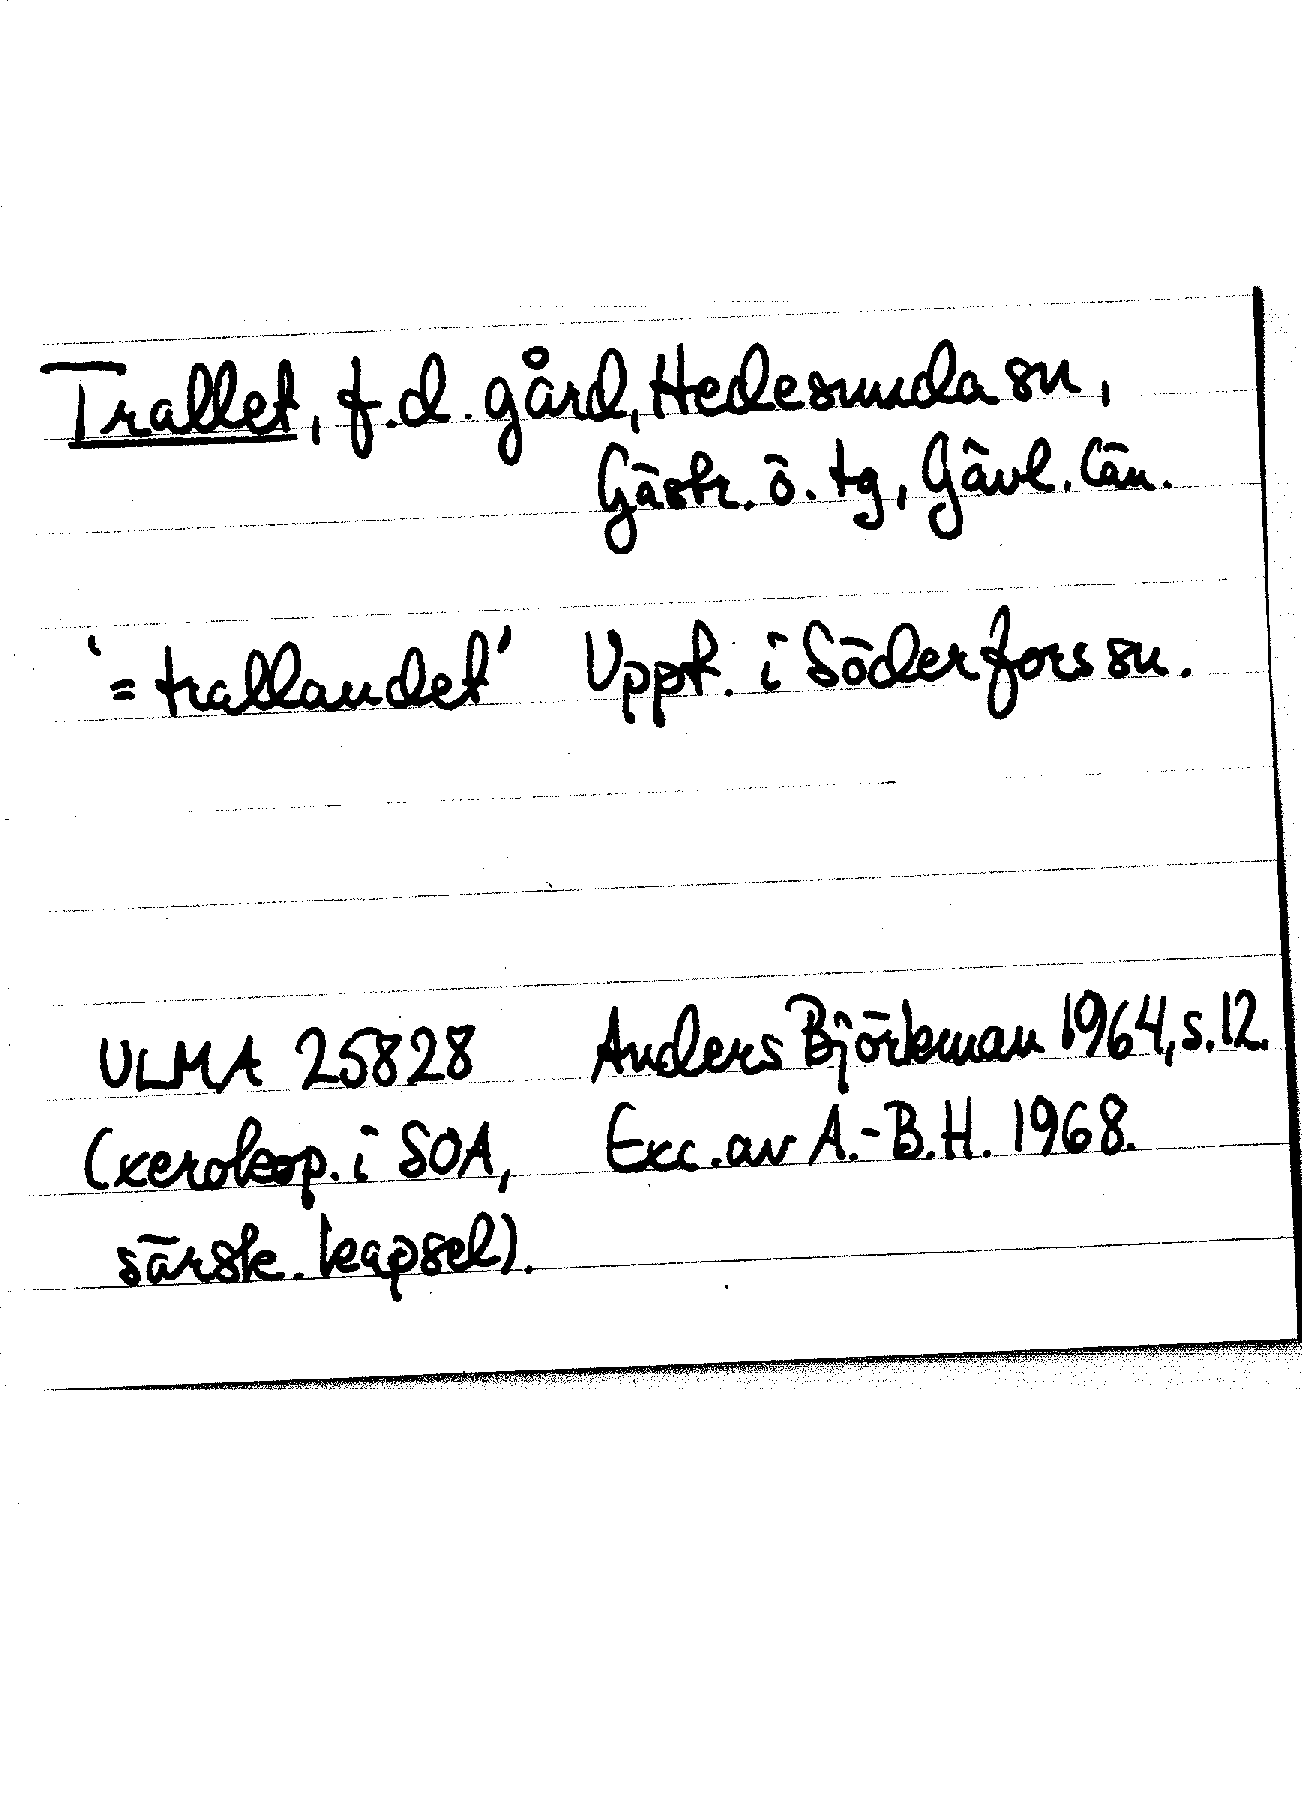 Trallet, f.d. gård, Hedesunda sn,
Gästr. ö. tg, Gävl. län.
'= trallandet' Uppt. i Söderfors sn.
ULMA 25828 Anders Björkman 1964, s. 12.
(xerokop. i SOA, Exc. av A.-B.H. 1968.
särsk. kapsel).